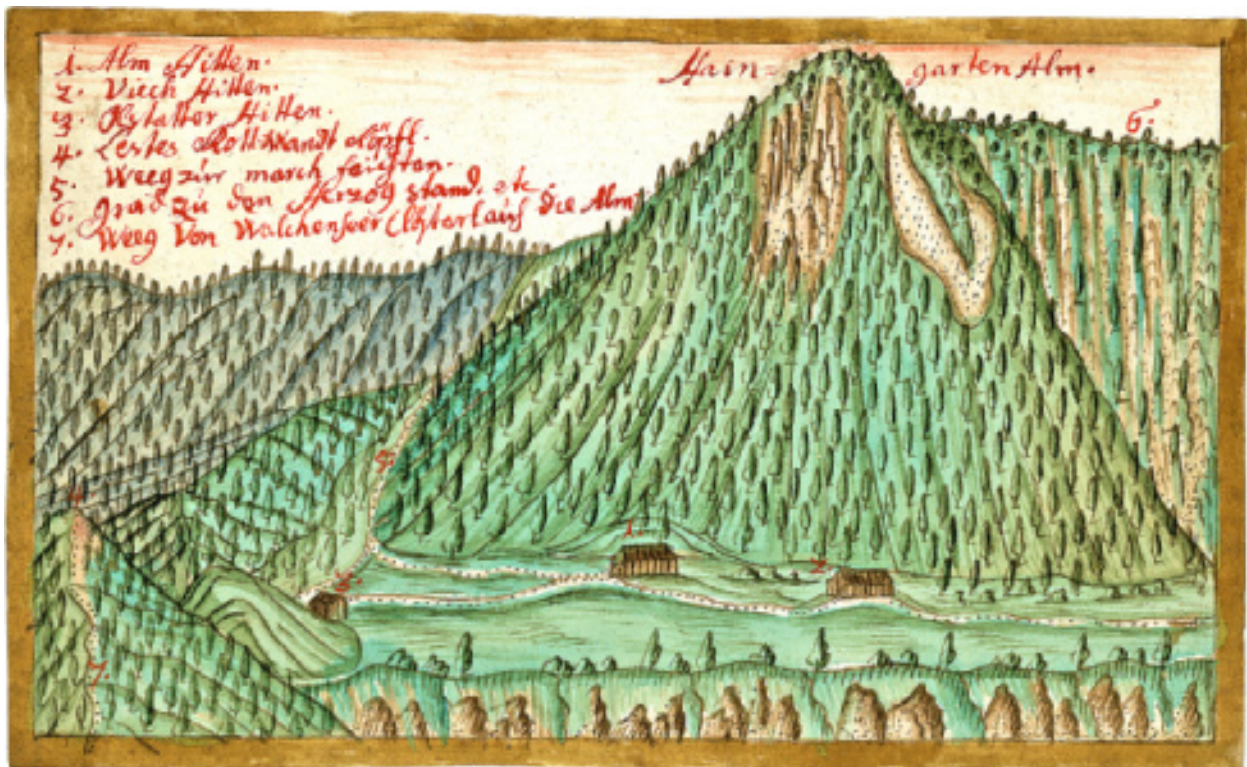 1. Alm Hitten.
2. Viech Hitten.
3. Hitten.
4. Lestes Rottwandt Köpfl.
5. Weeg zur march feichten.
6. grad zu den Herzog stand. etc
7. Weeg Von Walchenseer Clösterl auf die Alm
Hain= garten Alm.
6.
5.
1.
2.
3.
4.
7.